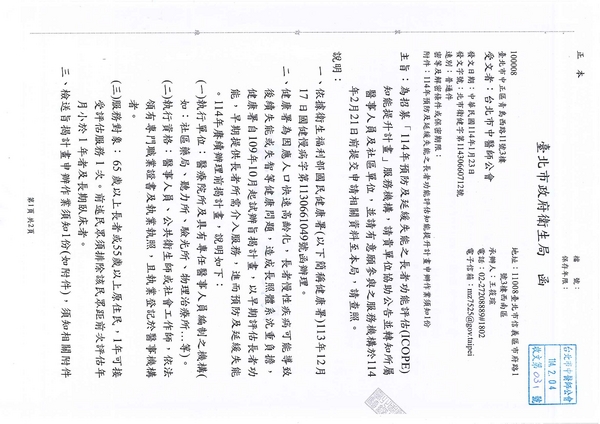 正 本
檔 號：
保存年限：
臺北市政府衛生局 函
地址：110008臺北市信義區市府路1
號3樓西南區
承辦人：王筱瑄
電話：02-27208889#1802
電子信箱：mz7525@gov.taipei
台北市中醫師公會
114. 2. 04
收文第031號
100008
臺北市中正區青島西路11號3樓
受文者：台北市中醫師公會
發文日期：中華民國114年1月23日
發文字號：北市衛健字第1143060712號
速別：普通件
密等及解密條件或保密期限：
附件：114年預防及延緩失能之長者功能評估知能提升計畫申辦作業須知1份
主旨：為招募「114年預防及延緩失能之長者功能評估(ICOPE)
知能提升計畫」服務機構，請貴單位協助公告並轉知所屬
醫事人員及社區單位，並請有意願參與之服務機構於114
年2月21日前提交申請相關資料至本局，請查照。
說明：
一、依據衛生福利部國民健康署(以下簡稱健康署)113年12月
17日國健慢病字第1130661049號函辦理。
二、健康署為因應人口快速高齡化，長者慢性疾病可能導致
後續失能或失智等健康問題，造成長照體系沈重負擔，
健康署自109年10月起試辦旨揭計畫，以早期評估長者功
能，早期提供長者所需介入服務，進而預防及延緩失能
。114年度續辦理前揭計畫，說明如下：
(一)執行單位：醫療院所及具有專任醫事人員編制之機構(
如：社區藥局、聽力所、驗光所、物理治療所...等)。
(二)執行資格：醫事人員、公共衛生師或社會工作師，依法
領有專門職業證書及執業執照，且執業登記於醫事機構
者。
(三)服務對象：65歲以上長者或55歲以上原住民，1年可接
受評估服務一次。前述民眾須排除該民眾距前次評估年
月小於1年者及長期臥床者。
三、檢送旨揭計畫申辦作業須知1份(如附件)，須知相關附件
第1頁 共2頁